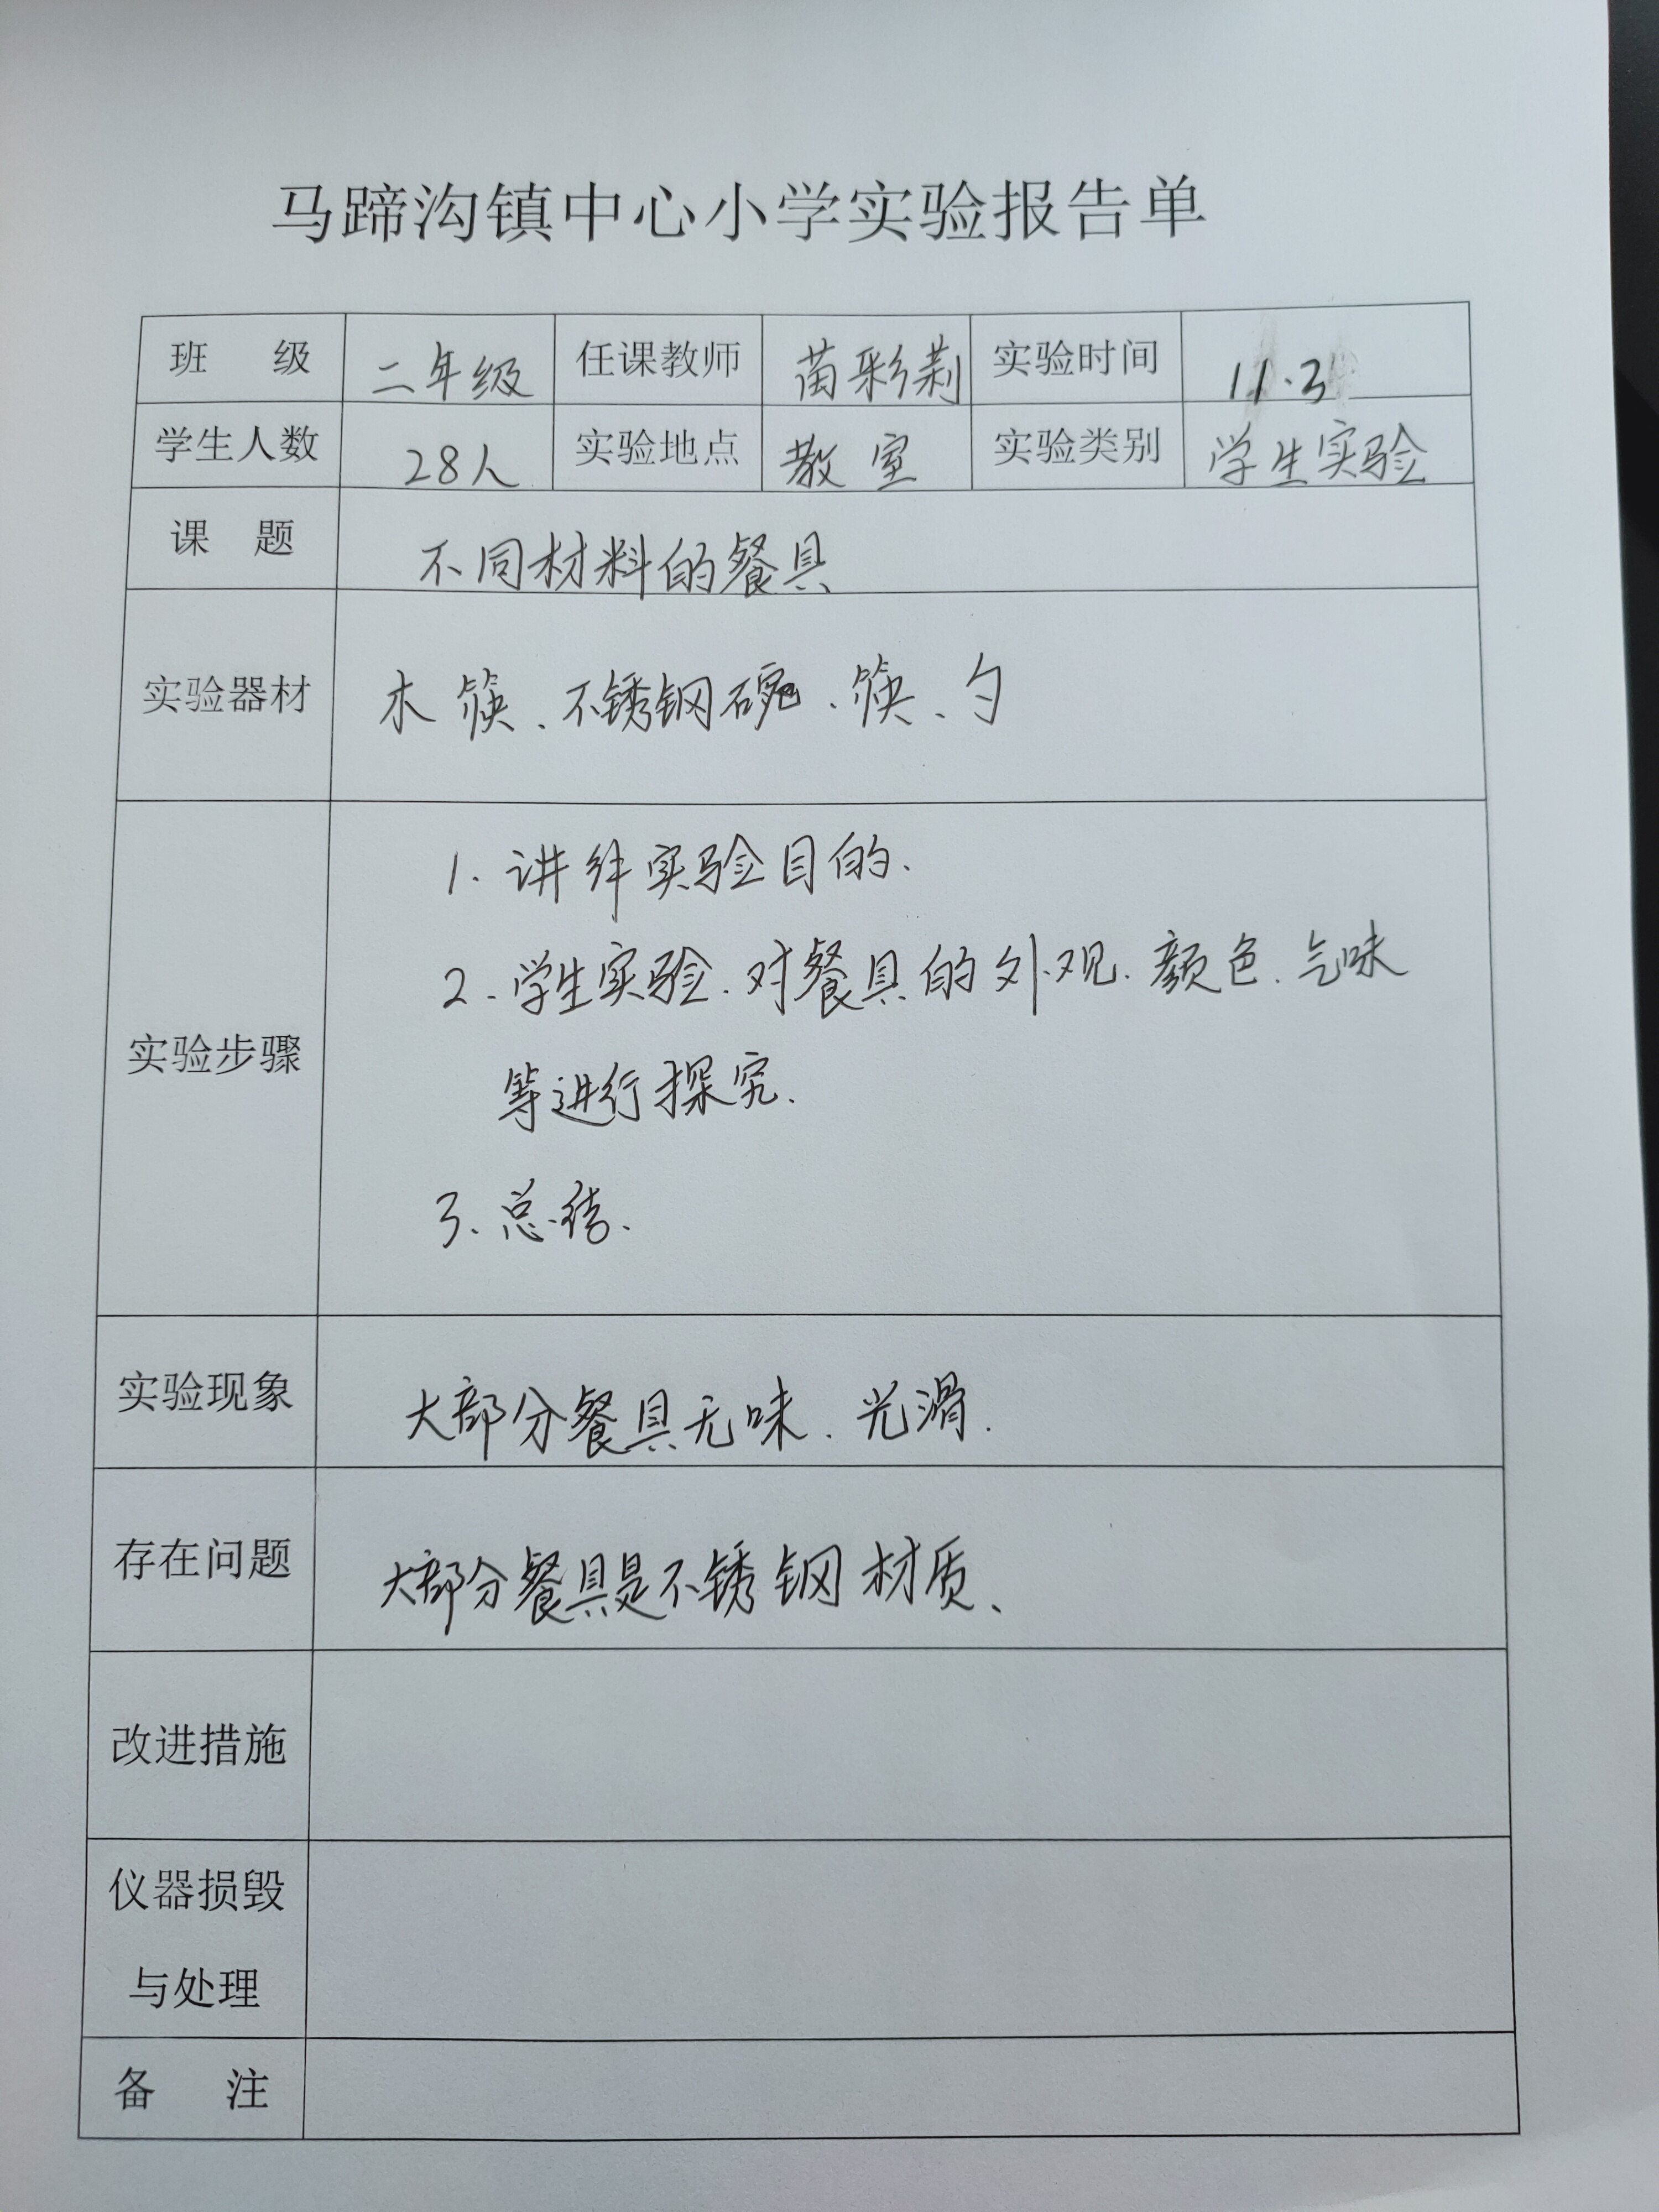 马蹄沟镇中心小学实验报告单
班 级 二年级 任课教师 苗彩 实验时间 11.3
学生人数 28人 实验地点 教室 实验类别 学生实验
课 题 不同材料的餐具
实验器材 木筷、不锈钢碗、筷、勺
实验步骤
1. 讲 实验目的.
2. 学生实验.对餐具的外观.颜色.气味
等进行探究.
3. 总结.
实验现象 大部分餐具无味.光滑.
存在问题 大部分餐具是不锈钢材质、
改进措施
仪器损毁
与处理
备 注